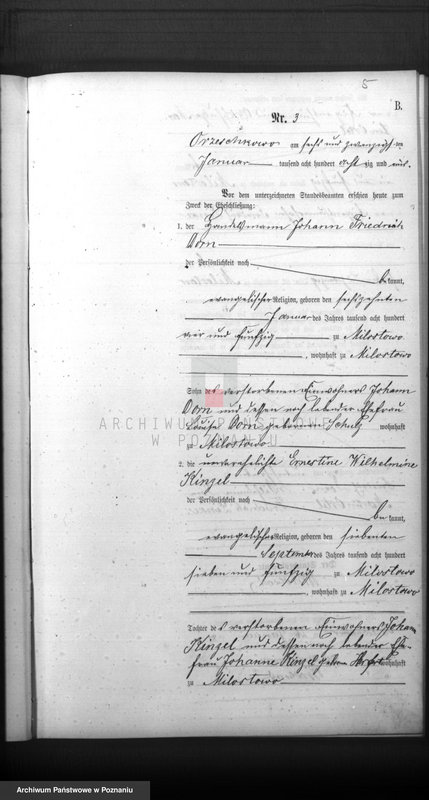 5
B.
Nr. 3
Orzeschkowo am sechs und zwanzigsten
Januar tausend acht hundert achtzig und
Vor dem unterzeichneten Standesbeamten erschien heute zum
Zweck der Eheschließung:
1. der Handelsmann Johann Friedrich
Dorn
der Persönlichkeit nach
bekannt,
evangelischer Religion, geboren den sechszehnten
Januar des Jahres tausend acht hundert
vier und fünfzig zu Milostowo
, wohnhaft zu Milostowo
Sohn des verstorbenen Einwohners Johann
Dorn und dessen noch lebender Ehefrau
Louise Dorn geborenen Schulz wohnhaft
zu Milostowo
ARCHIWUM PAŃSTWOWE
W POZNANIU
2. die unverehelichte Ernestine Wilhelmine
Kinzel
der Persönlichkeit nach
bekannt,
evangelischer Religion, geboren den siebenten
September des Jahres tausend acht hundert
sieben und fünfzig zu Milostowo
, wohnhaft zu Milostowo
Tochter des verstorbenen Einwohners Johann
Kinzel und dessen noch lebender Ehe-
frau Johanne Kinzel wohnhaft
zu Milostowo
Archiwum Państwowe w Poznaniu